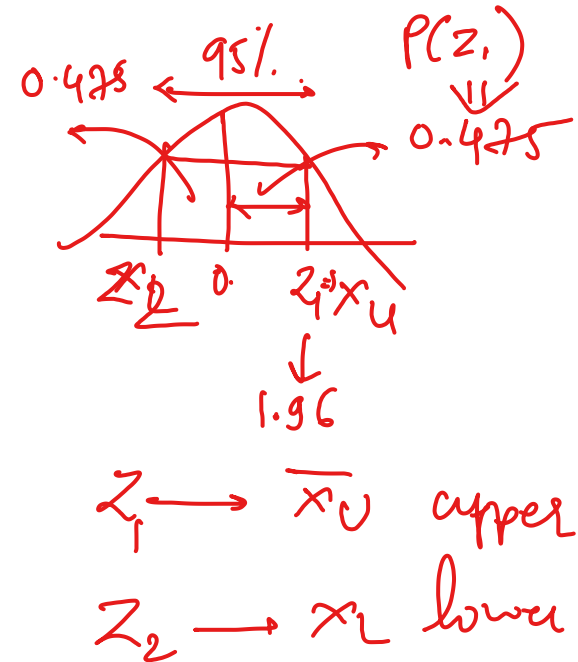 95%
P(Z₁)
0.475
0.475
Z₂ 0. Z₁ = X̄ᵤ
1.96
Z₁ ⟷ X̄ᵤ upper
Z₂ → X_L lower